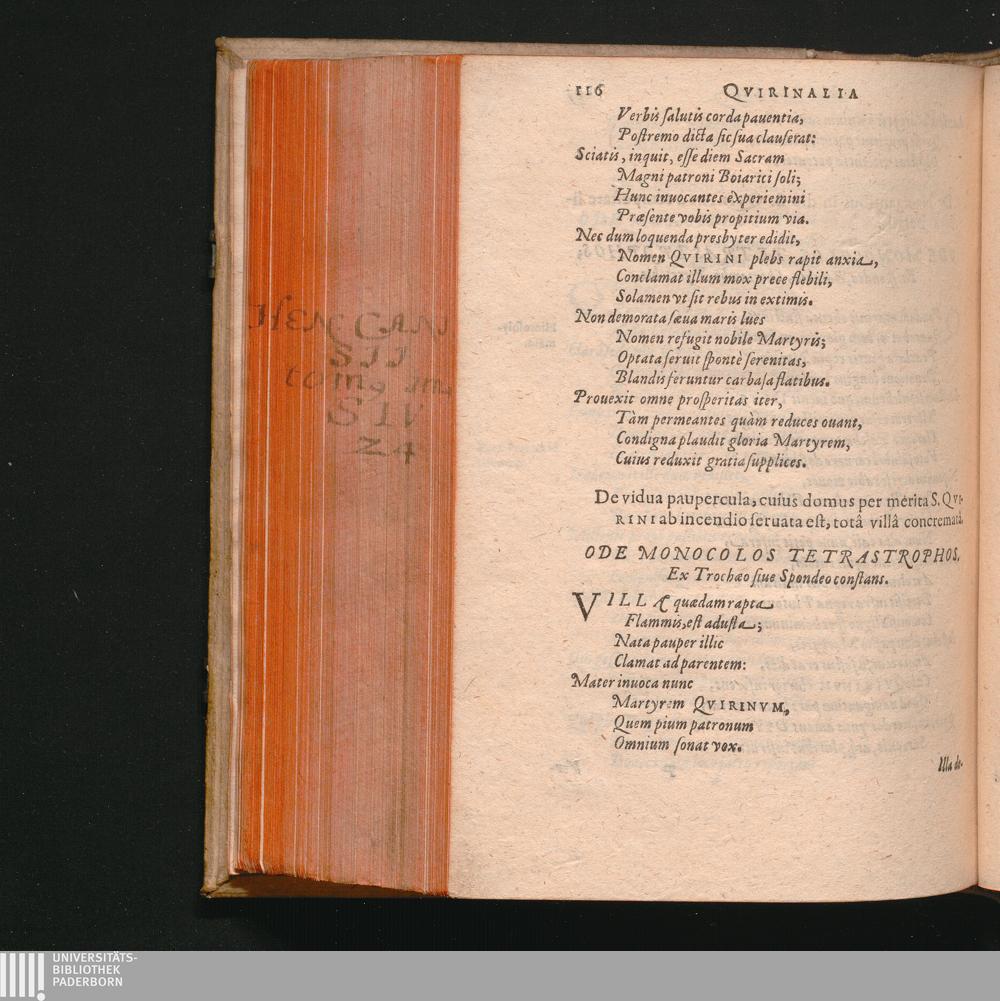 116 QVIRINALIA
Verbis salutis corda pauentia,
Postremo dicta sic sua clauserat:
Sciatis, inquit, esse diem Sacram
Magni patroni Boiarici soli;
Hunc inuocantes experiemini
Præsente vobis propitium via.
Nec dum loquenda presbyter edidit,
Nomen QVIRINI plebs rapit anxia,
Conclamat illum mox prece flebili,
Solamen vt sit rebus in extimis.
Non demorata sæua maris lues
Nomen refugit nobile Martyris;
Optata seruit spontè serenitas,
Blandis feruntur carbasa flatibus.
Prouexit omne prosperitas iter,
Tàm permeantes quàm reduces ouant,
Condigna plaudit gloria Martyrem,
Cuius reduxit gratia supplices.
De vidua paupercula, cuius domus per merita S. QVI-
RINI ab incendio seruata est, totâ villâ concrematâ.
ODE MONOCOLOS TETRASTROPHOS,
Ex Trochæo siue Spondeo constans.
VILLÆ quædam rapta
Flammis, est adusta;
Nata pauper illic
Clamat ad parentem:
Mater inuoca nunc
Martyrem QVIRINVM,
Quem pium patronum
Omnium sonat vox.
Illa de-
HEN CANI
SII
tom9 im
SIV
24
UNIVERSITÄTS-
BIBLIOTHEK
PADERBORN